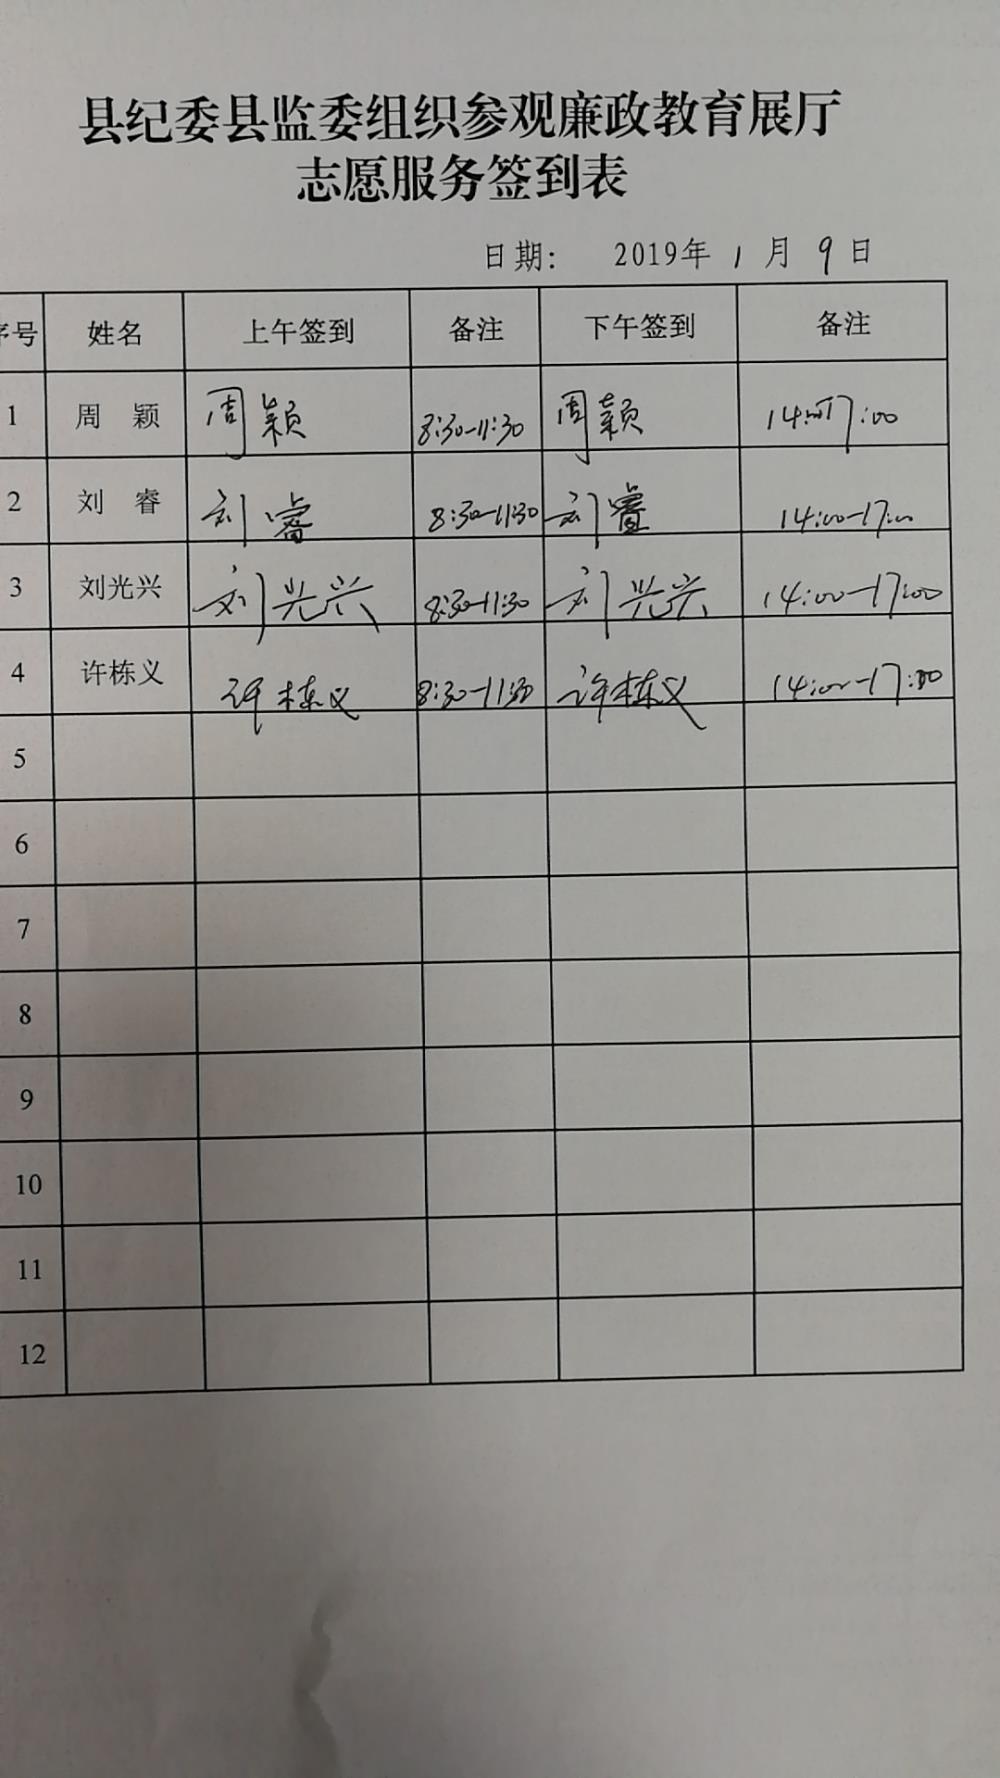 县纪委县监委组织参观廉政教育展厅
志愿服务签到表
日期： 2019年 1 月 9 日
序号 姓名 上午签到 备注 下午签到 备注
1 周 颖 周颖 8:30-11:30 周颖 14:00-17:00
2 刘 睿 刘睿 8:30-11:30 刘睿 14:00-17:00
3 刘光兴 刘光兴 8:30-11:30 刘光兴 14:00-17:00
4 许栋义 许栋义 8:30-11:30 许栋义 14:00-17:00
5
6
7
8
9
10
11
12